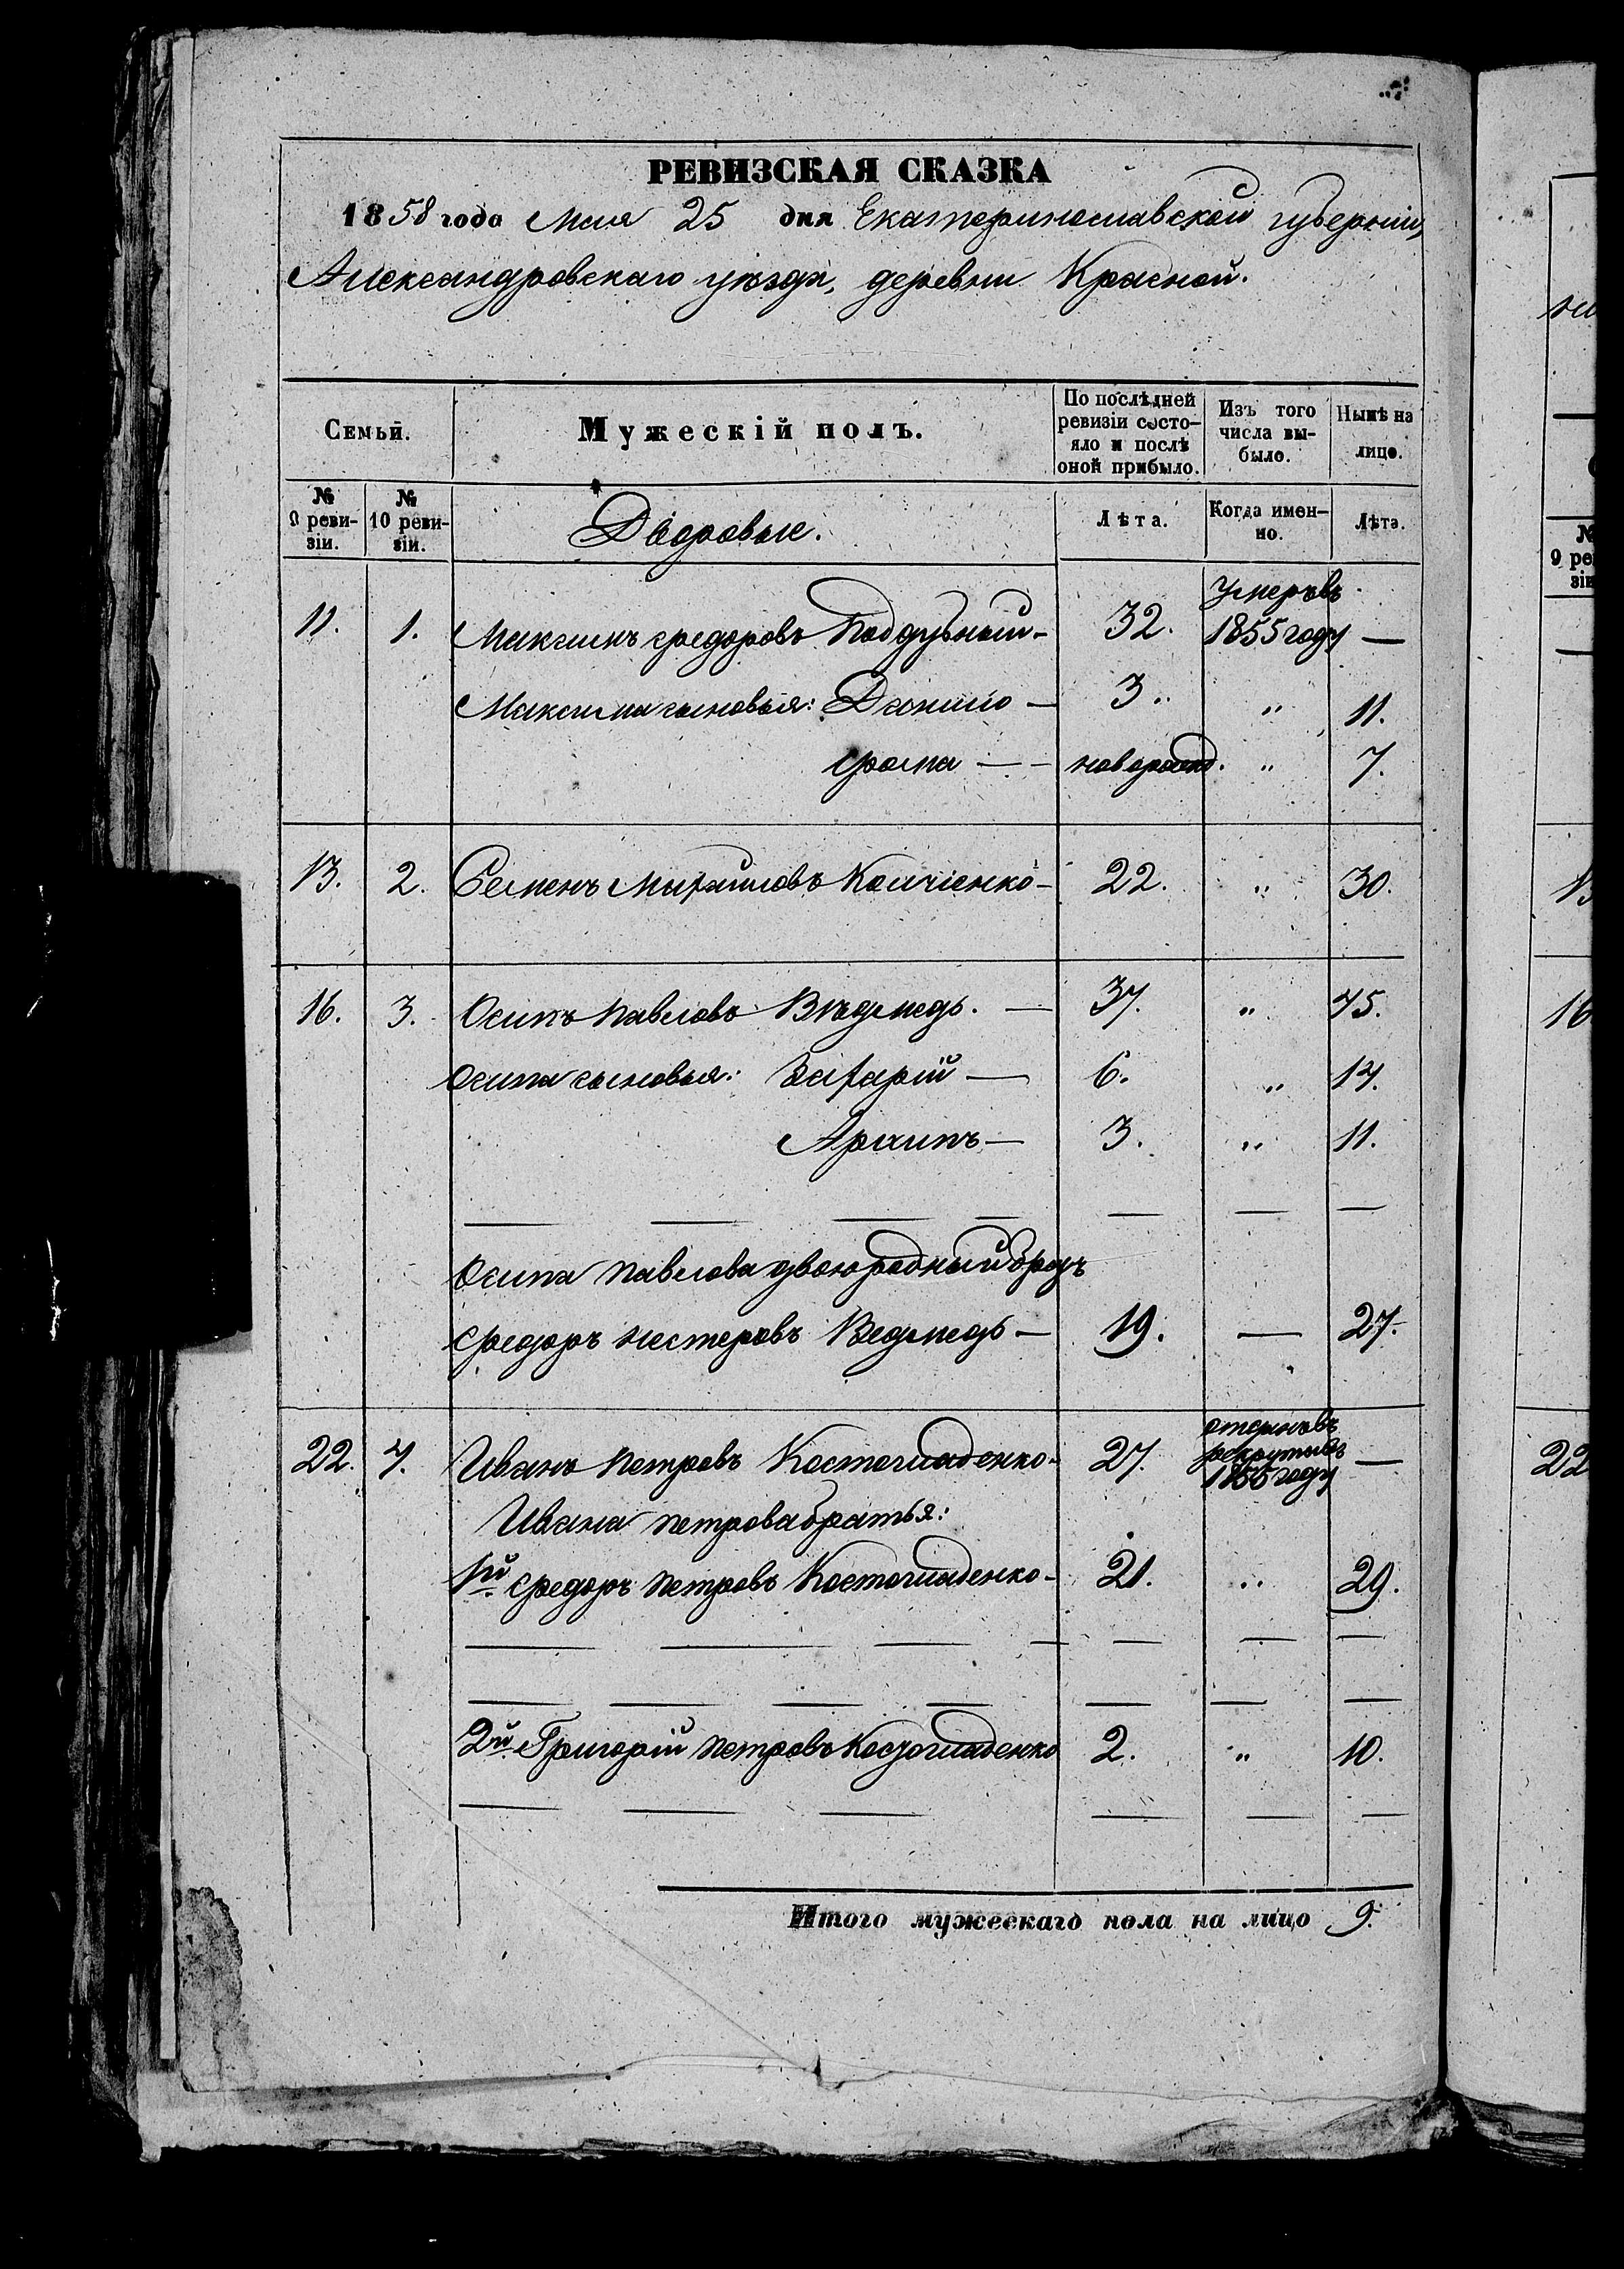 РЕВИЗСКАЯ СКАЗКА
1858 года Мая 25 дня Екатеринославской губерніи,
Александровскаго уѣзда, деревни Красной.
Семьи.
Мужескій полъ.
По послѣдней ревизіи состо-
яло и послѣ оной прибыло.
Изъ того числа вы-
было.
Нынѣ на лице.
№ 9 реви-
зіи.
№ 10 реви-
зіи.
Дворовые.
Лѣта.
Когда имен-
но.
Лѣта.
11. 1. Максимъ Федоровъ Поддубный — 32. Умеръ въ 1855 году —
Максима сыновья: Данило — 3. „ 11.
Фома — — новорожд. „ 7.
13. 2. Семенъ Михайловъ — 22. „ 30.
16. 3. Осипъ Павловъ Вѣдмедь. — 37. „ 45.
Осипа сыновья: Захарій — 6. „ 14.
Архипъ — 3. „ 11.
Осипа Павлова двоюродный братъ
Федоръ Нестеровъ Ведмедь — 19. — 27.
22. 4. Иванъ Петровъ Костогладенко — 27. рекруты въ 1855 году —
Ивана Петрова братья:
1й Федоръ Петровъ Костогладенко — 21. „ 29.
2й Григорій Петровъ Костогладенко 2. „ 10.
Итого мужескаго пола на лицо 9.